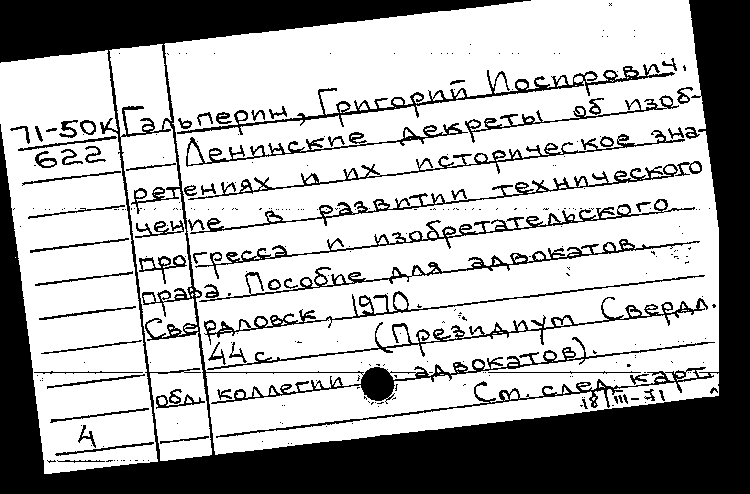 71-50К Гальперин, Григорий Иосифович.
622 Ленинские декреты об изоб-
ретениях и их историческое зна-
чение в развитии технического
прогресса и изобретательского
права. Пособие для адвокатов.
Свердловск, 1970.
44 с. (Президиум Свердл.
обл. коллегии адвокатов).
См. след. карт.
4 18/III-71